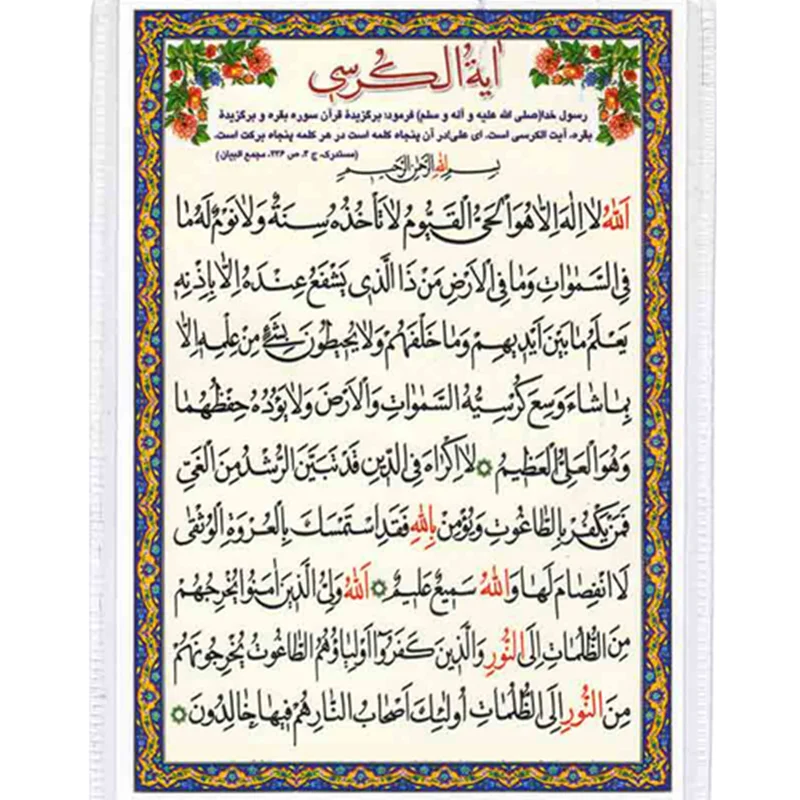 اٰیةُ الکُرسی
رسول خدا(صلی الله علیه و آله و سلم) فرمود: برگزیدهٔ قرآن سوره بقره و برگزیدهٔ
بقره، آیت الکرسی است. ای علی!در آن پنجاه کلمه است در هر کلمه پنجاه برکت است.
(مستدرک، ج ۴، ص ۳۳۶، مجمع البیان)
بِسْمِ اللهِ الرَّحْمنِ الرَّحیمِ
اَللهُ لا اِلهَ اِلاّ هُوَ الْحَیُّ الْقَیُّومُ لا تَأْخُذُهُ سِنَةٌ وَ لا نَوْمٌ لَهُ ما
فِی السَّمٰوٰاتِ وَ ما فِی الْاَرْضِ مَنْ ذَا الَّذی یَشْفَعُ عِنْدَهُ اِلاّ بِاِذْنِهِ
یَعْلَمُ ما بَیْنَ اَیْدیهِمْ وَ ما خَلْفَهُمْ وَ لا یُحیطُونَ بِشَیْءٍ مِنْ عِلْمِهِ اِلاّ
بِما شاءَ وَسِعَ کُرْسِیُّهُ السَّمٰوٰاتِ وَ الْاَرْضَ وَ لا یَؤُدُهُ حِفْظُهُما
وَ هُوَ الْعَلِیُّ الْعَظیمُ ۞ لا اِکْراهَ فِی الدّینِ قَدْ تَبَیَّنَ الرُّشْدُ مِنَ الْغَیِّ
فَمَنْ یَکْفُرْ بِالطّاغُوتِ وَ یُؤْمِنْ بِاللهِ فَقَدِ اسْتَمْسَکَ بِالْعُرْوَةِ الْوُثْقٰی
لَا انْفِصامَ لَها وَ اللهُ سَمیعٌ عَلیمٌ ۞ اَللهُ وَلِیُّ الَّذینَ اٰمَنُوا یُخْرِجُهُمْ
مِنَ الظُّلُماتِ اِلَی النُّورِ وَ الَّذینَ کَفَرُوا اَوْلِیاؤُهُمُ الطّاغُوتُ یُخْرِجُونَهُمْ
مِنَ النُّورِ اِلَی الظُّلُماتِ اُولٰئِکَ اَصْحابُ النّارِ هُمْ فیها خالِدُونَ ۞